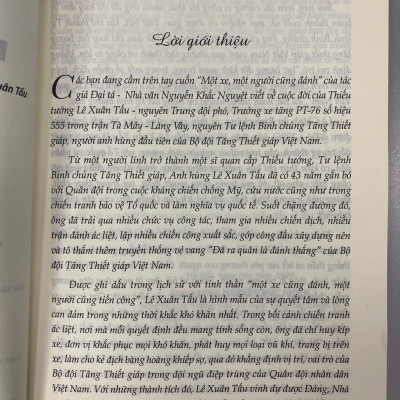 uân Tấu
Lời giới thiệu
Các bạn đang cầm trên tay cuốn “Một xe, một người cũng đánh” của tác
giả Đại tá - Nhà văn Nguyễn Khắc Nguyệt viết về cuộc đời của Thiếu
tướng Lê Xuân Tấu - nguyên Trung đội phó, Trưởng xe tăng PT-76 số hiệu
555 trong trận Tà Mây - Làng Vây, nguyên Tư lệnh Binh chủng Tăng Thiết
giáp, người anh hùng đầu tiên của Bộ đội Tăng Thiết giáp Việt Nam.
Từ một người lính trở thành một sĩ quan cấp Thiếu tướng, Tư lệnh
Binh chủng Tăng Thiết giáp, Anh hùng Lê Xuân Tấu đã có 43 năm gắn bó
với Quân đội trong cuộc kháng chiến chống Mỹ, cứu nước cũng như trong
chiến tranh bảo vệ Tổ quốc và làm nghĩa vụ quốc tế. Suốt chặng đường đó,
ông đã trải qua nhiều chức vụ công tác, tham gia nhiều chiến dịch, nhiều
trận đánh ác liệt, lập nhiều chiến công xuất sắc, góp công đầu xây dựng nên
và tô thắm thêm truyền thống vẻ vang “Đã ra quân là đánh thắng” của Bộ
đội Tăng Thiết giáp Việt Nam.
Được ghi dấu trong lịch sử với tinh thần “một xe cũng đánh, một
người cũng tiến công”, Lê Xuân Tấu là hình mẫu của sự quyết tâm và lòng
can đảm trong những thời khắc khó khăn nhất. Trong bối cảnh chiến tranh
ác liệt, nơi mà mỗi quyết định đều mang tính sống còn, ông đã chỉ huy kíp
xe, đơn vị khắc phục mọi khó khăn, phát huy mọi loại vũ khí, trang bị trên
xe, làm cho kẻ địch bàng hoàng khiếp sợ, qua đó khẳng định vị trí, vai trò của
Bộ đội Tăng Thiết giáp trong đội ngũ điệp trùng của Quân đội nhân dân
Việt Nam. Với những thành tích đó, Lê Xuân Tấu vinh dự được Đảng, Nhà